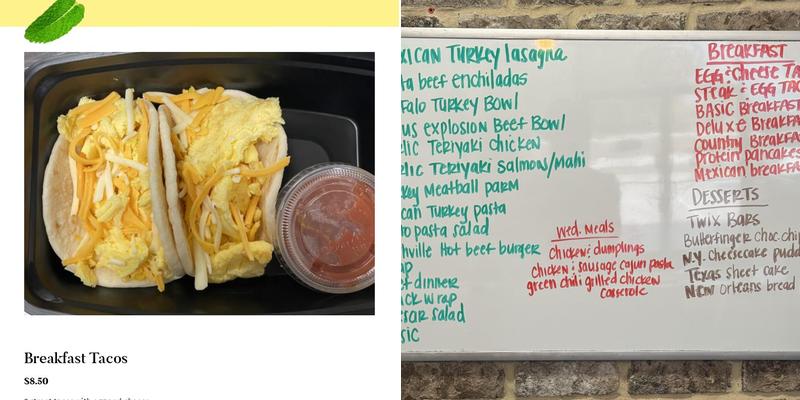 Breakfast Tacos
$8.50
XICAN TURKEY lasagna
ta beef enchiladas
falo Turkey Bowl
us explosion Beef Bowl
lic Teriyaki chicken
lic Teriyaki Salmon/Mahi
key Meatball parm
can Turkey pasta
ro pasta salad
hville Hot beef burger
ap
ef dinner
ack wrap
esar salad
sic
Wed. Meals
chicken & dumplings
chicken & sausage cajun pasta
green chili grilled chicken
casserole
BREAKFAST
EGG & Cheese TA
STEAK & EGG TAC
BASIC BREAKFAST
Deluxe BREAKFA
Country BREAKFA
Protein pancakes
Mexican breakfa
DESSERTS
TWIX BARS
Butterfinger choc. chip
N.Y. cheesecake pudd
Texas sheet cake
New Orleans bread